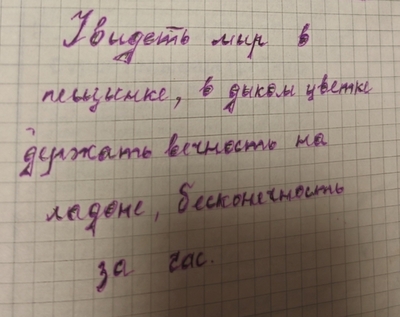 Увидеть мир в
песчинке, в диком цветке
держать вечность на
ладоне, бесконечность
за час.